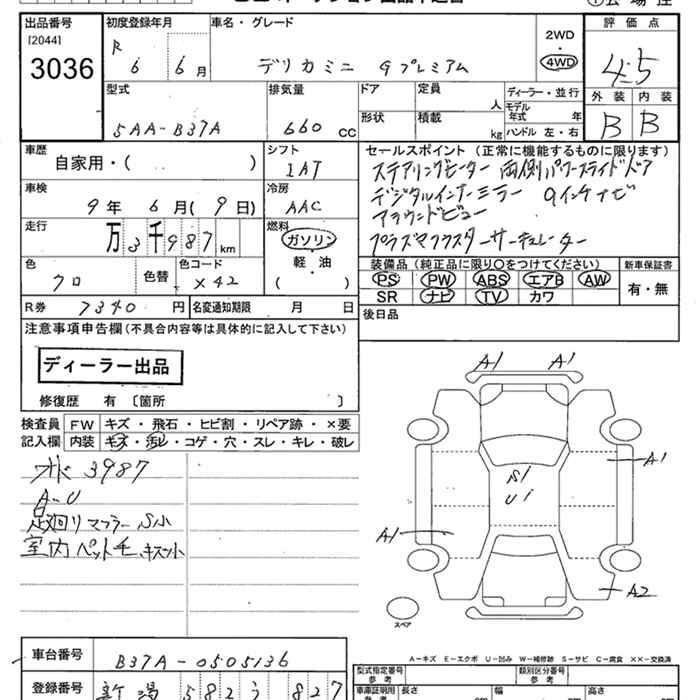 出品番号 初度登録年月 車名・グレード 評価点
[2044]
3036
R 6 6月 デリカミニ Gプレミアム 2WD・4WD 4.5
型式 排気量 ドア 定員 人 ディーラー・並行 外装 内装
5AA-B37A 660 cc 形状 積載 kg モデル年式 年 ハンドル 左・右 B B
車歴 シフト セールスポイント (正常に機能するものに限ります)
自家用・( ) IAT ステアリングヒーター 両側パワースライドドア
車検 冷房 デジタルインナーミラー 9インチナビ
9年 6月(9日) AAC アラウンドビュー
走行 燃料
万3千987km ガソリン プラズマクラスターサーキュレーター
軽・油
( )
色 色替 色コード 装備品(純正品に限り○をつけてください) 新車保証書
クロ X42 PS PW ABS エアB AW 有・無
SR ナビ TV カワ
R券 7340円 名変通知期限 月 日 後日品
注意事項申告欄(不具合内容等は具体的に記入して下さい)
ディーラー出品
修復歴 有 〔箇所 〕
検査員 FW キズ・飛石・ヒビ割・リペア跡・×要
記入欄 内装 キズ・汚レ・コゲ・穴・スレ・キレ・破レ
3987
A-U
足廻リ マフラー S小
室内 ペット毛、キズ小
A1 A1
A1
S1
U1
A1
A2
スペア
A－キズ E－エクボ U－凹み W－補修跡 S－サビ C－腐食 XX－交換済
車台番号 B37A-0505136
型式指定番号 類別区分番号
参考
登録番号 新潟 582 う 827
車庫証明用 長さ 幅 高さ